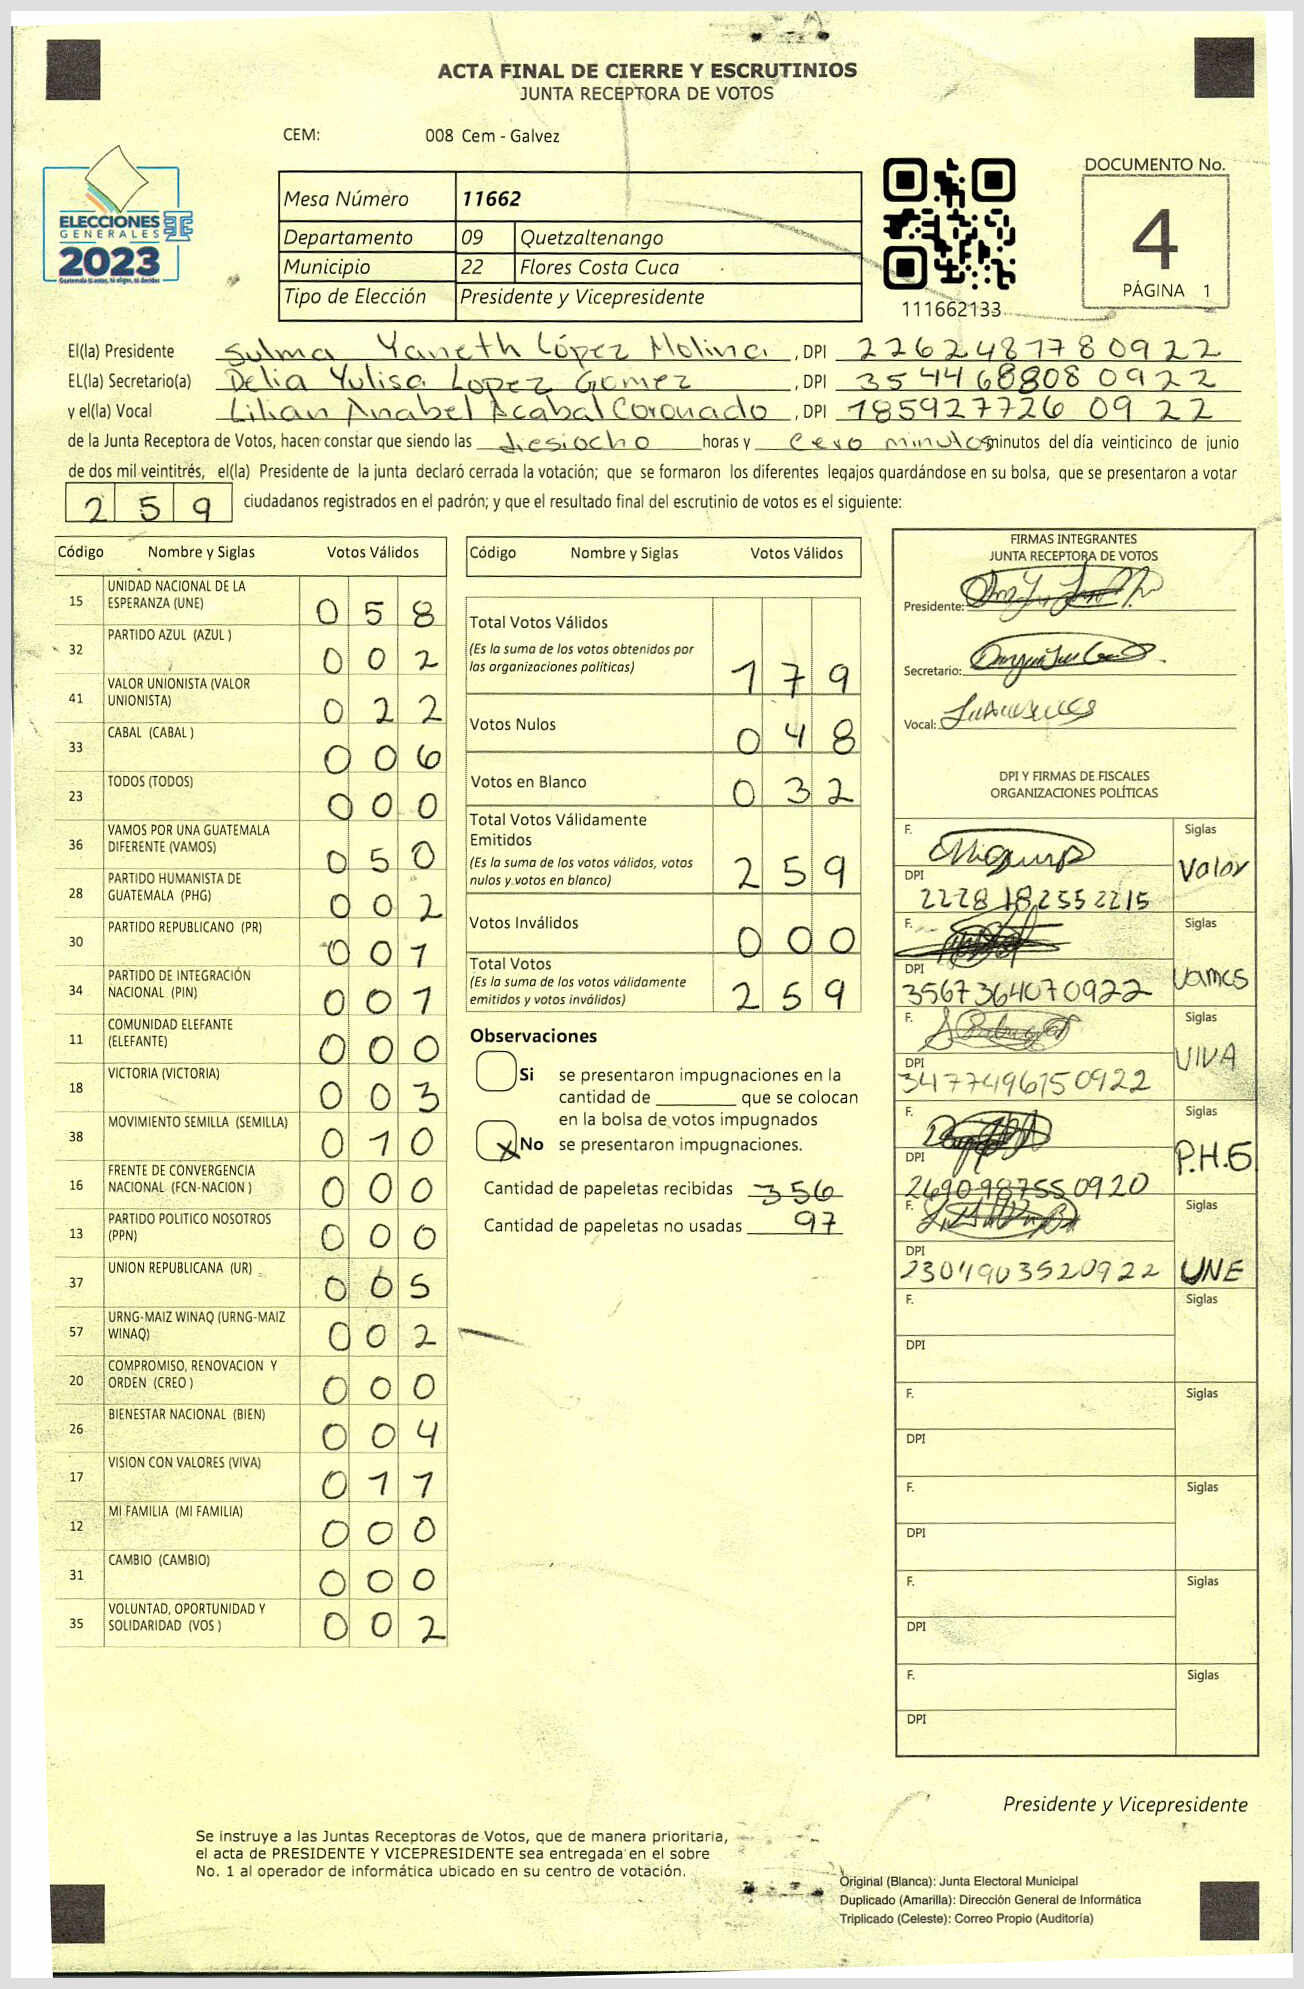 ACTA FINAL DE CIERRE Y ESCRUTINIOS
JUNTA RECEPTORA DE VOTOS
CEM: 008 Cem - Galvez
ELECCIONES
GENERALES
2023
Mesa Número 11662
Departamento 09 Quetzaltenango
Municipio 22 Flores Costa Cuca
Tipo de Elección Presidente y Vicepresidente
111662133
DOCUMENTO No.
4
PÁGINA 1
El(la) Presidente Sulma Yaneth López Molina, DPI 2262481780922
EL(la) Secretario(a) Delia Yulisa Lopez Gomez, DPI 3544688080922
y el(la) Vocal Lilian Anabel Acabal Coronado, DPI 1859277260922
de la Junta Receptora de Votos, hacen constar que siendo las diesiocho horas y cero minutos minutos del día veinticinco de junio
de dos mil veintitrés, el(la) Presidente de la junta declaró cerrada la votación; que se formaron los diferentes legajos quardándose en su bolsa, que se presentaron a votar
259 ciudadanos registrados en el padrón; y que el resultado final del escrutinio de votos es el siguiente:
Código Nombre y Siglas Votos Válidos
15 UNIDAD NACIONAL DE LA ESPERANZA (UNE) 058
32 PARTIDO AZUL (AZUL ) 002
41 VALOR UNIONISTA (VALOR UNIONISTA) 022
33 CABAL (CABAL ) 006
23 TODOS (TODOS) 000
36 VAMOS POR UNA GUATEMALA DIFERENTE (VAMOS) 050
28 PARTIDO HUMANISTA DE GUATEMALA (PHG) 002
30 PARTIDO REPUBLICANO (PR) 001
34 PARTIDO DE INTEGRACIÓN NACIONAL (PIN) 001
11 COMUNIDAD ELEFANTE (ELEFANTE) 000
18 VICTORIA (VICTORIA) 003
38 MOVIMIENTO SEMILLA (SEMILLA) 010
16 FRENTE DE CONVERGENCIA NACIONAL (FCN-NACION ) 000
13 PARTIDO POLITICO NOSOTROS (PPN) 000
37 UNION REPUBLICANA (UR) 005
57 URNG-MAIZ WINAQ (URNG-MAIZ WINAQ) 002
20 COMPROMISO, RENOVACION Y ORDEN (CREO ) 000
26 BIENESTAR NACIONAL (BIEN) 004
17 VISION CON VALORES (VIVA) 011
12 MI FAMILIA (MI FAMILIA) 000
31 CAMBIO (CAMBIO) 000
35 VOLUNTAD, OPORTUNIDAD Y SOLIDARIDAD (VOS ) 002
Código Nombre y Siglas Votos Válidos
Total Votos Válidos 179
(Es la suma de los votos obtenidos por
las organizaciones políticas)
Votos Nulos 048
Votos en Blanco 032
Total Votos Válidamente
Emitidos 259
(Es la suma de los votos válidos, votos
nulos y votos en blanco)
Votos Inválidos 000
Total Votos 259
(Es la suma de los votos válidamente
emitidos y votos inválidos)
Observaciones
Si se presentaron impugnaciones en la
cantidad de ________ que se colocan
en la bolsa de votos impugnados
X No se presentaron impugnaciones.
Cantidad de papeletas recibidas 356
Cantidad de papeletas no usadas 97
FIRMAS INTEGRANTES
JUNTA RECEPTORA DE VOTOS
Presidente:
Secretario:
Vocal:
DPI Y FIRMAS DE FISCALES
ORGANIZACIONES POLÍTICAS
F. Siglas Valor
DPI 2228182552215
F. Siglas Vamos
DPI 3567364070922
F. Siglas VIVA
DPI 3477496750922
F. Siglas P.H.G
DPI 2690987550920
F. Siglas UNE
DPI 2304903520922
F. Siglas
DPI
F. Siglas
DPI
F. Siglas
DPI
F. Siglas
DPI
F. Siglas
DPI
Presidente y Vicepresidente
Se instruye a las Juntas Receptoras de Votos, que de manera prioritaria,
el acta de PRESIDENTE Y VICEPRESIDENTE sea entregada en el sobre
No. 1 al operador de informática ubicado en su centro de votación.
Original (Blanca): Junta Electoral Municipal
Duplicado (Amarilla): Dirección General de Informática
Triplicado (Celeste): Correo Propio (Auditoría)